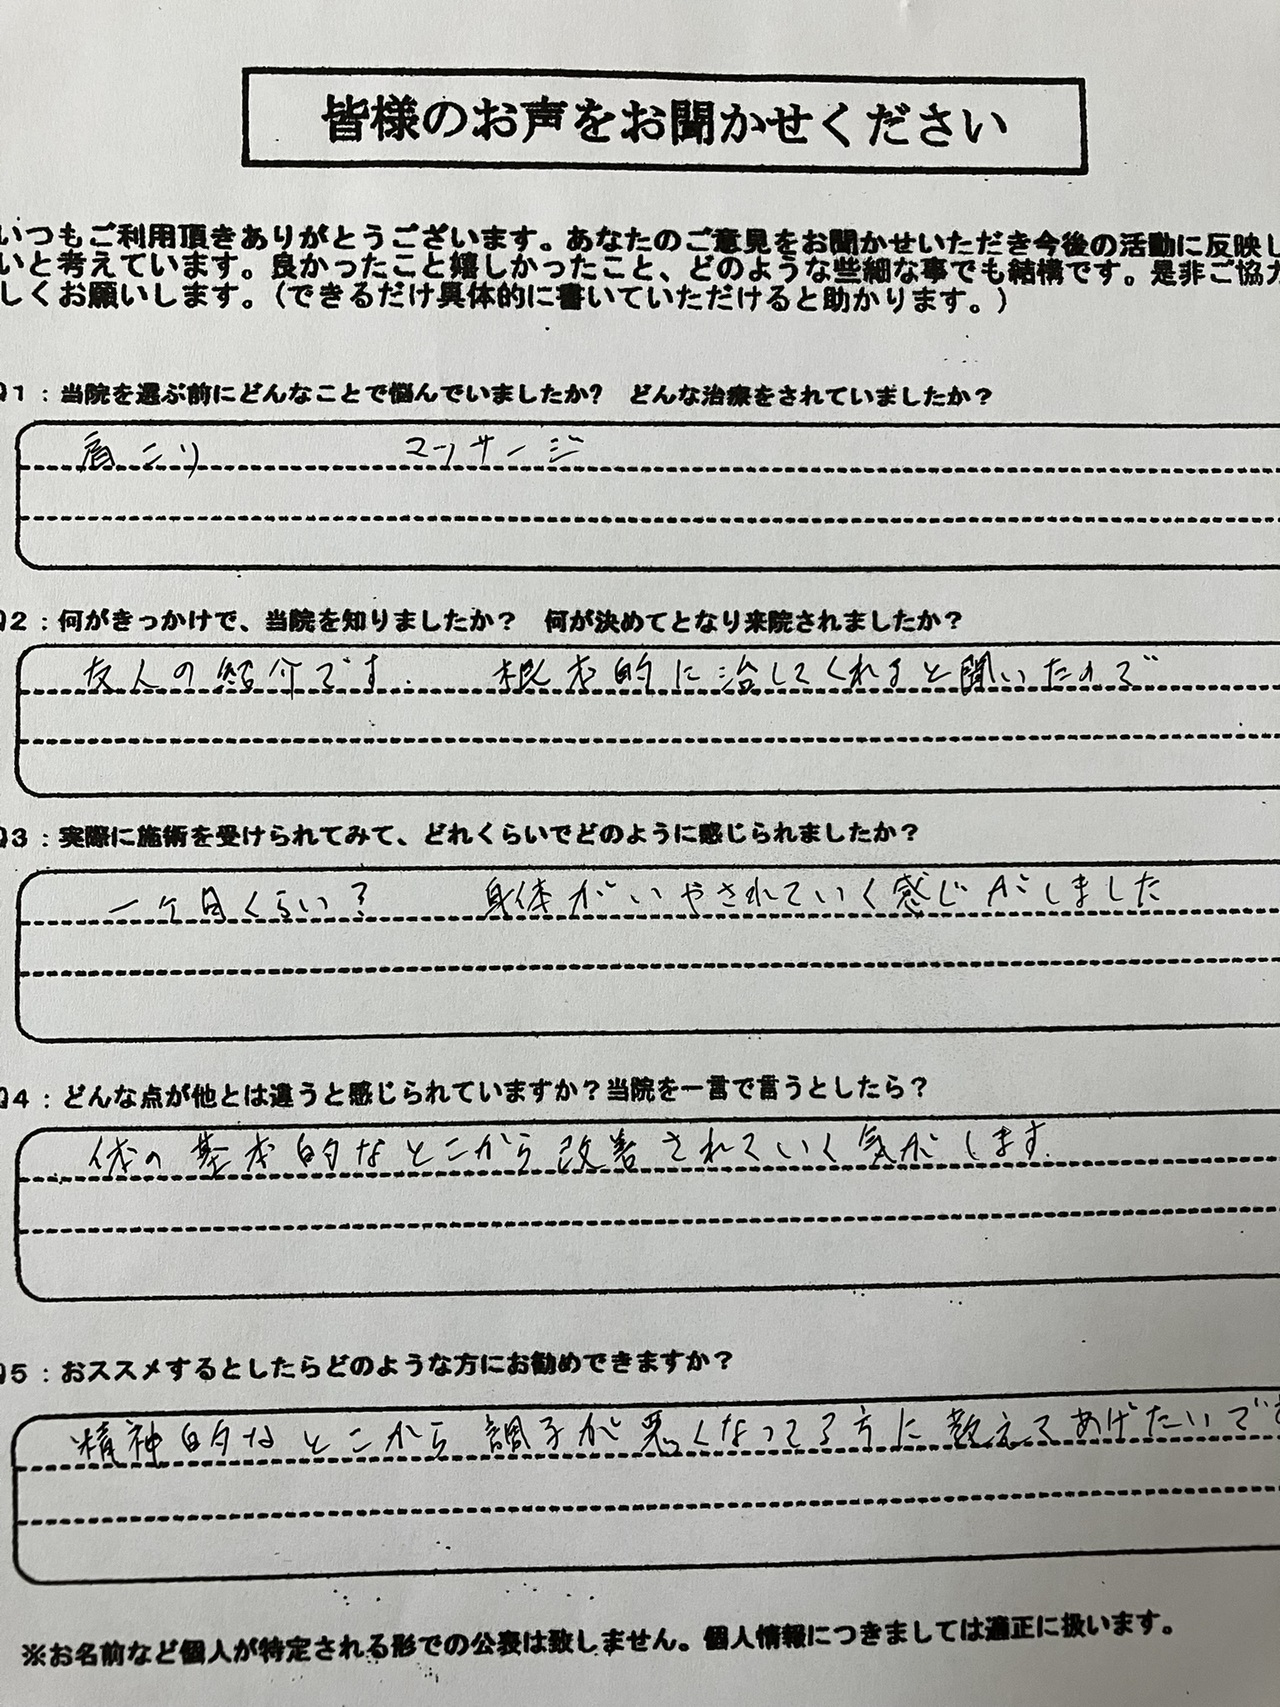 皆様のお声をお聞かせください
いつもご利用頂きありがとうございます。あなたのご意見をお聞かせいただき今後の活動に反映し
いと考えています。良かったこと嬉しかったこと、どのような些細な事でも結構です。是非ご協力
しくお願いします。(できるだけ具体的に書いていただけると助かります。)
Q1：当院を選ぶ前にどんなことで悩んでいましたか?　どんな治療をされていましたか？
肩こり　マッサージ
Q2：何がきっかけで、当院を知りましたか？　何が決めてとなり来院されましたか？
友人の紹介です.　根本的に治してくれると聞いたので
Q3：実際に施術を受けられてみて、どれくらいでどのように感じられましたか？
一ヶ月くらい？　身体がいやされていく感じがしました
Q4：どんな点が他とは違うと感じられていますか？当院を一言で言うとしたら？
体の基本的なところから改善されていく気がします.
Q5：おススメするとしたらどのような方にお勧めできますか？
精神的なところから調子が悪くなってる方に教えてあげたいです
※お名前など個人が特定される形での公表は致しません。個人情報につきましては適正に扱います。